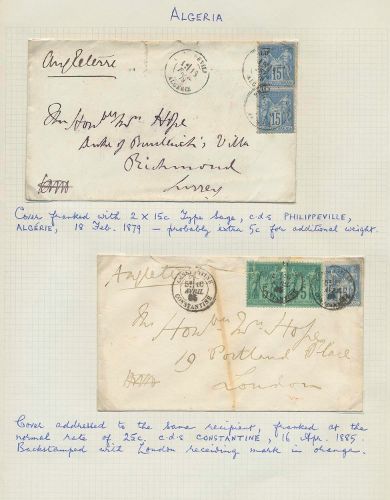 ALGERIA
Angleterre
15 FEVR 79
ALGERIE
15
15
The Honble Mrs Hope
Duke of Buccleuch's Villa
Richmond
Surrey
Cover franked with 2 x 15c Type Sage, c.d.s PHILIPPEVILLE,
ALGÉRIE, 18 Feb. 1879 – probably extra 5c for additional weight.
Angleterre
CONSTANTINE
AVRIL
85
5
The Honble Mrs Hope
19 Portland Place
London
Cover addressed to the same recipient, franked at the
normal rate of 25c, c.d.s CONSTANTINE, 16 Apr. 1885.
Backstamped with London receiving mark in orange.